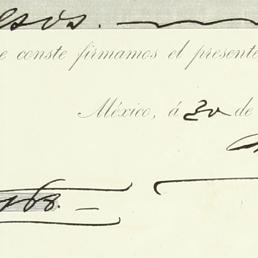 esos.
e conste firmamos el present
México, á 30 de
168.